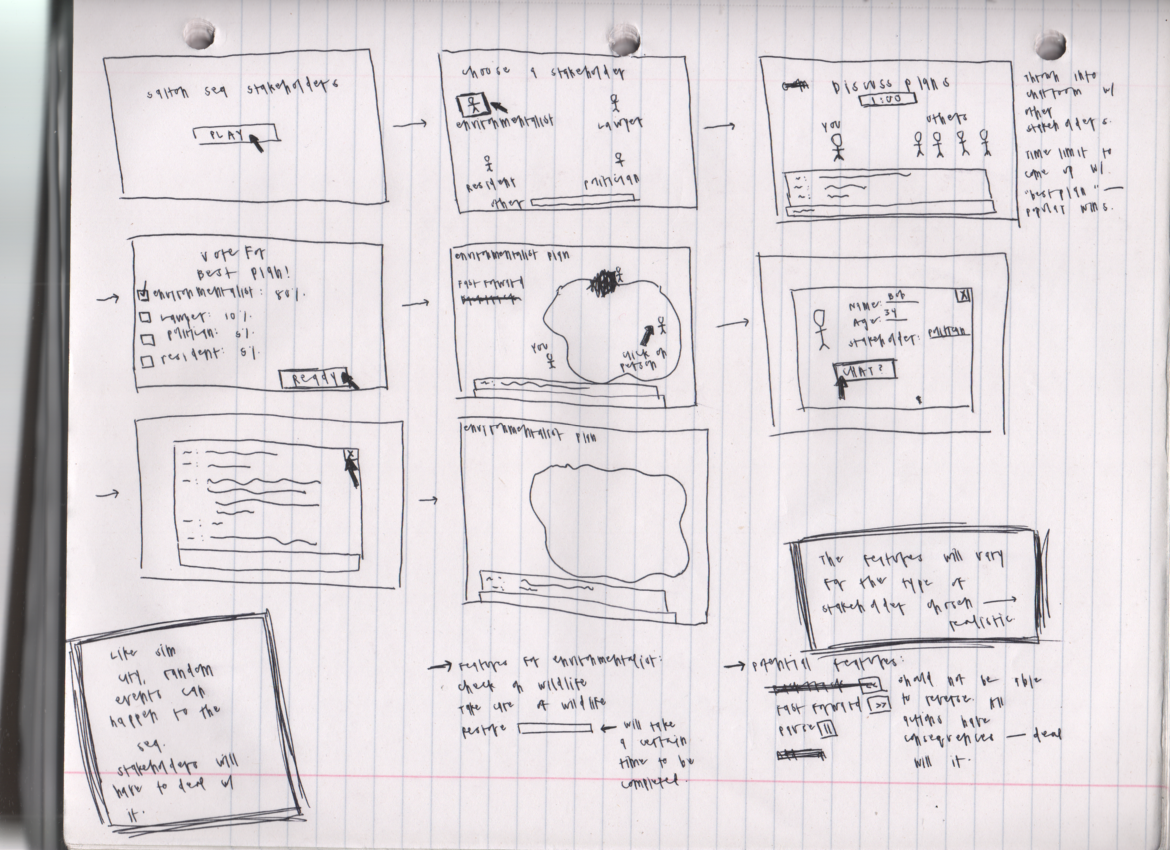 Salton Sea Stakeholders
PLAY
Choose a stakeholder
environmentalist
Lawyer
Resident
politician
other
Discuss plans
1:00
YOU
others
thrown into
chatroom w/
other
stakeholders.
Time limit to
come up w/
"best plan" —
popular wins.
Vote for
Best Plan!
environmentalist: 80%.
Lawyer: 10%
politician: 5%.
resident: 5%.
Ready
environmentalist plan
Fast Forward
YOU
click on
person
X
Name: Bob
Age: 34
Stakeholder: politician
CHAT?
X
environmentalist plan
The features will vary
for the type of
stakeholder chosen →
realistic
Like Sim
City, random
events can
happen to the
sea.
Stakeholders will
have to deal w/
it.
→ Features for environmentalist:
check on wildlife
Take care of wildlife
Restore
← will take
a certain
time to be
completed.
→ potential features:
<< should not be able
to reverse. All
actions have
consequences — deal
will it.
Fast forward >>
Pause ||